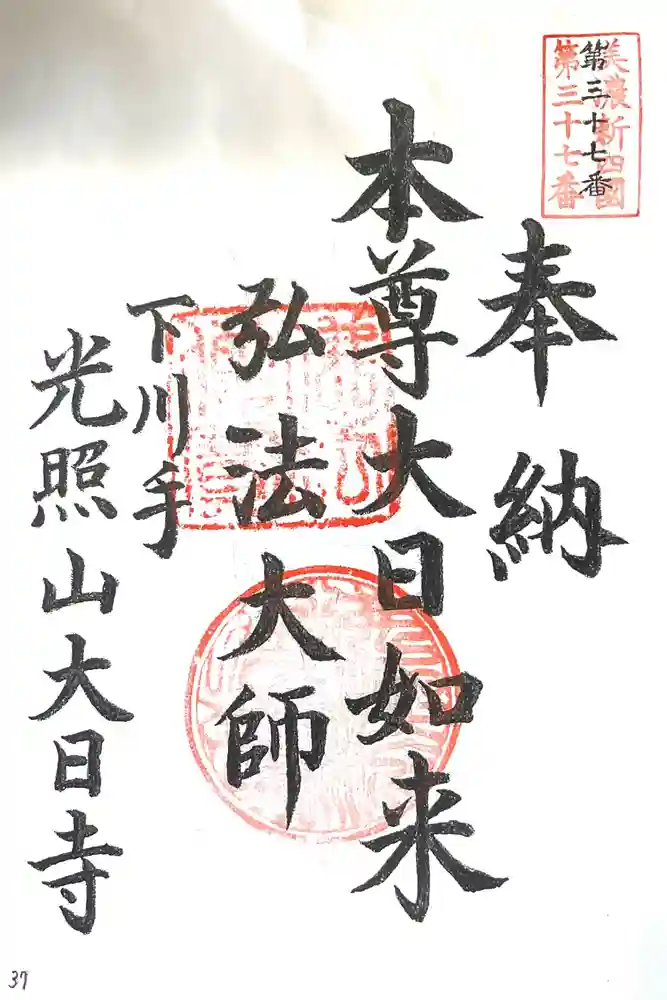 美濃新四國
第三十七番
第三十七番
奉納
本尊大日如来
弘法大師
下川手
光照山大日寺
37